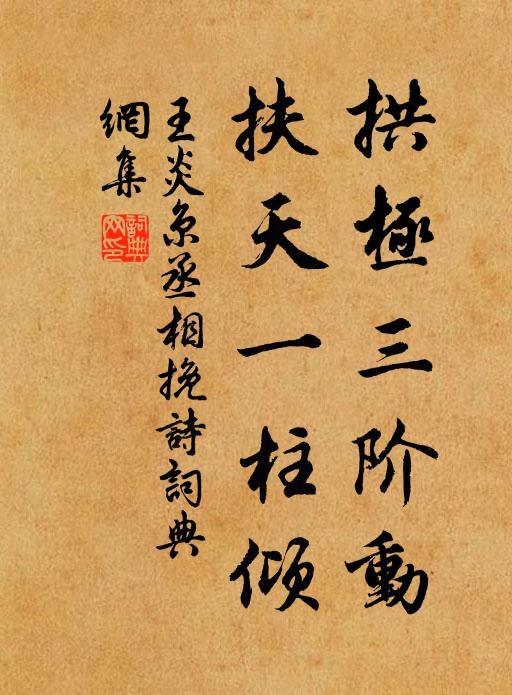 拱極三阶動
扶天一柱傾
王炎京丞相挽詩詞典
網集
詞典
网印